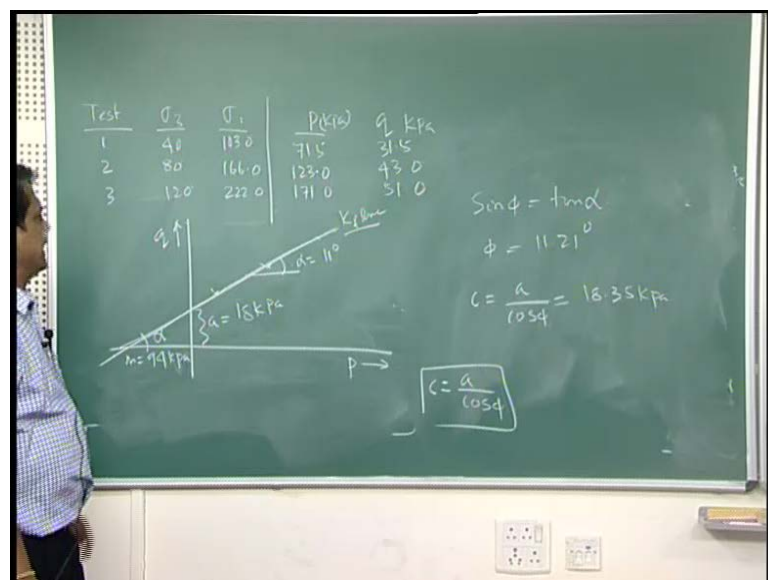 Test σ3 σ1 P(KPa) q KPa
1 40 103.0 71.5 31.5
2 80 166.0 123.0 43.0
3 120 222.0 171.0 51.0
q ↑
Kf line
α = 11°
a = 18 KPa
α
m = 94 kPa
P →
Sinϕ = tanα
ϕ = 11.21°
C = a/cosϕ = 18.35 KPa
C = a/cosϕ